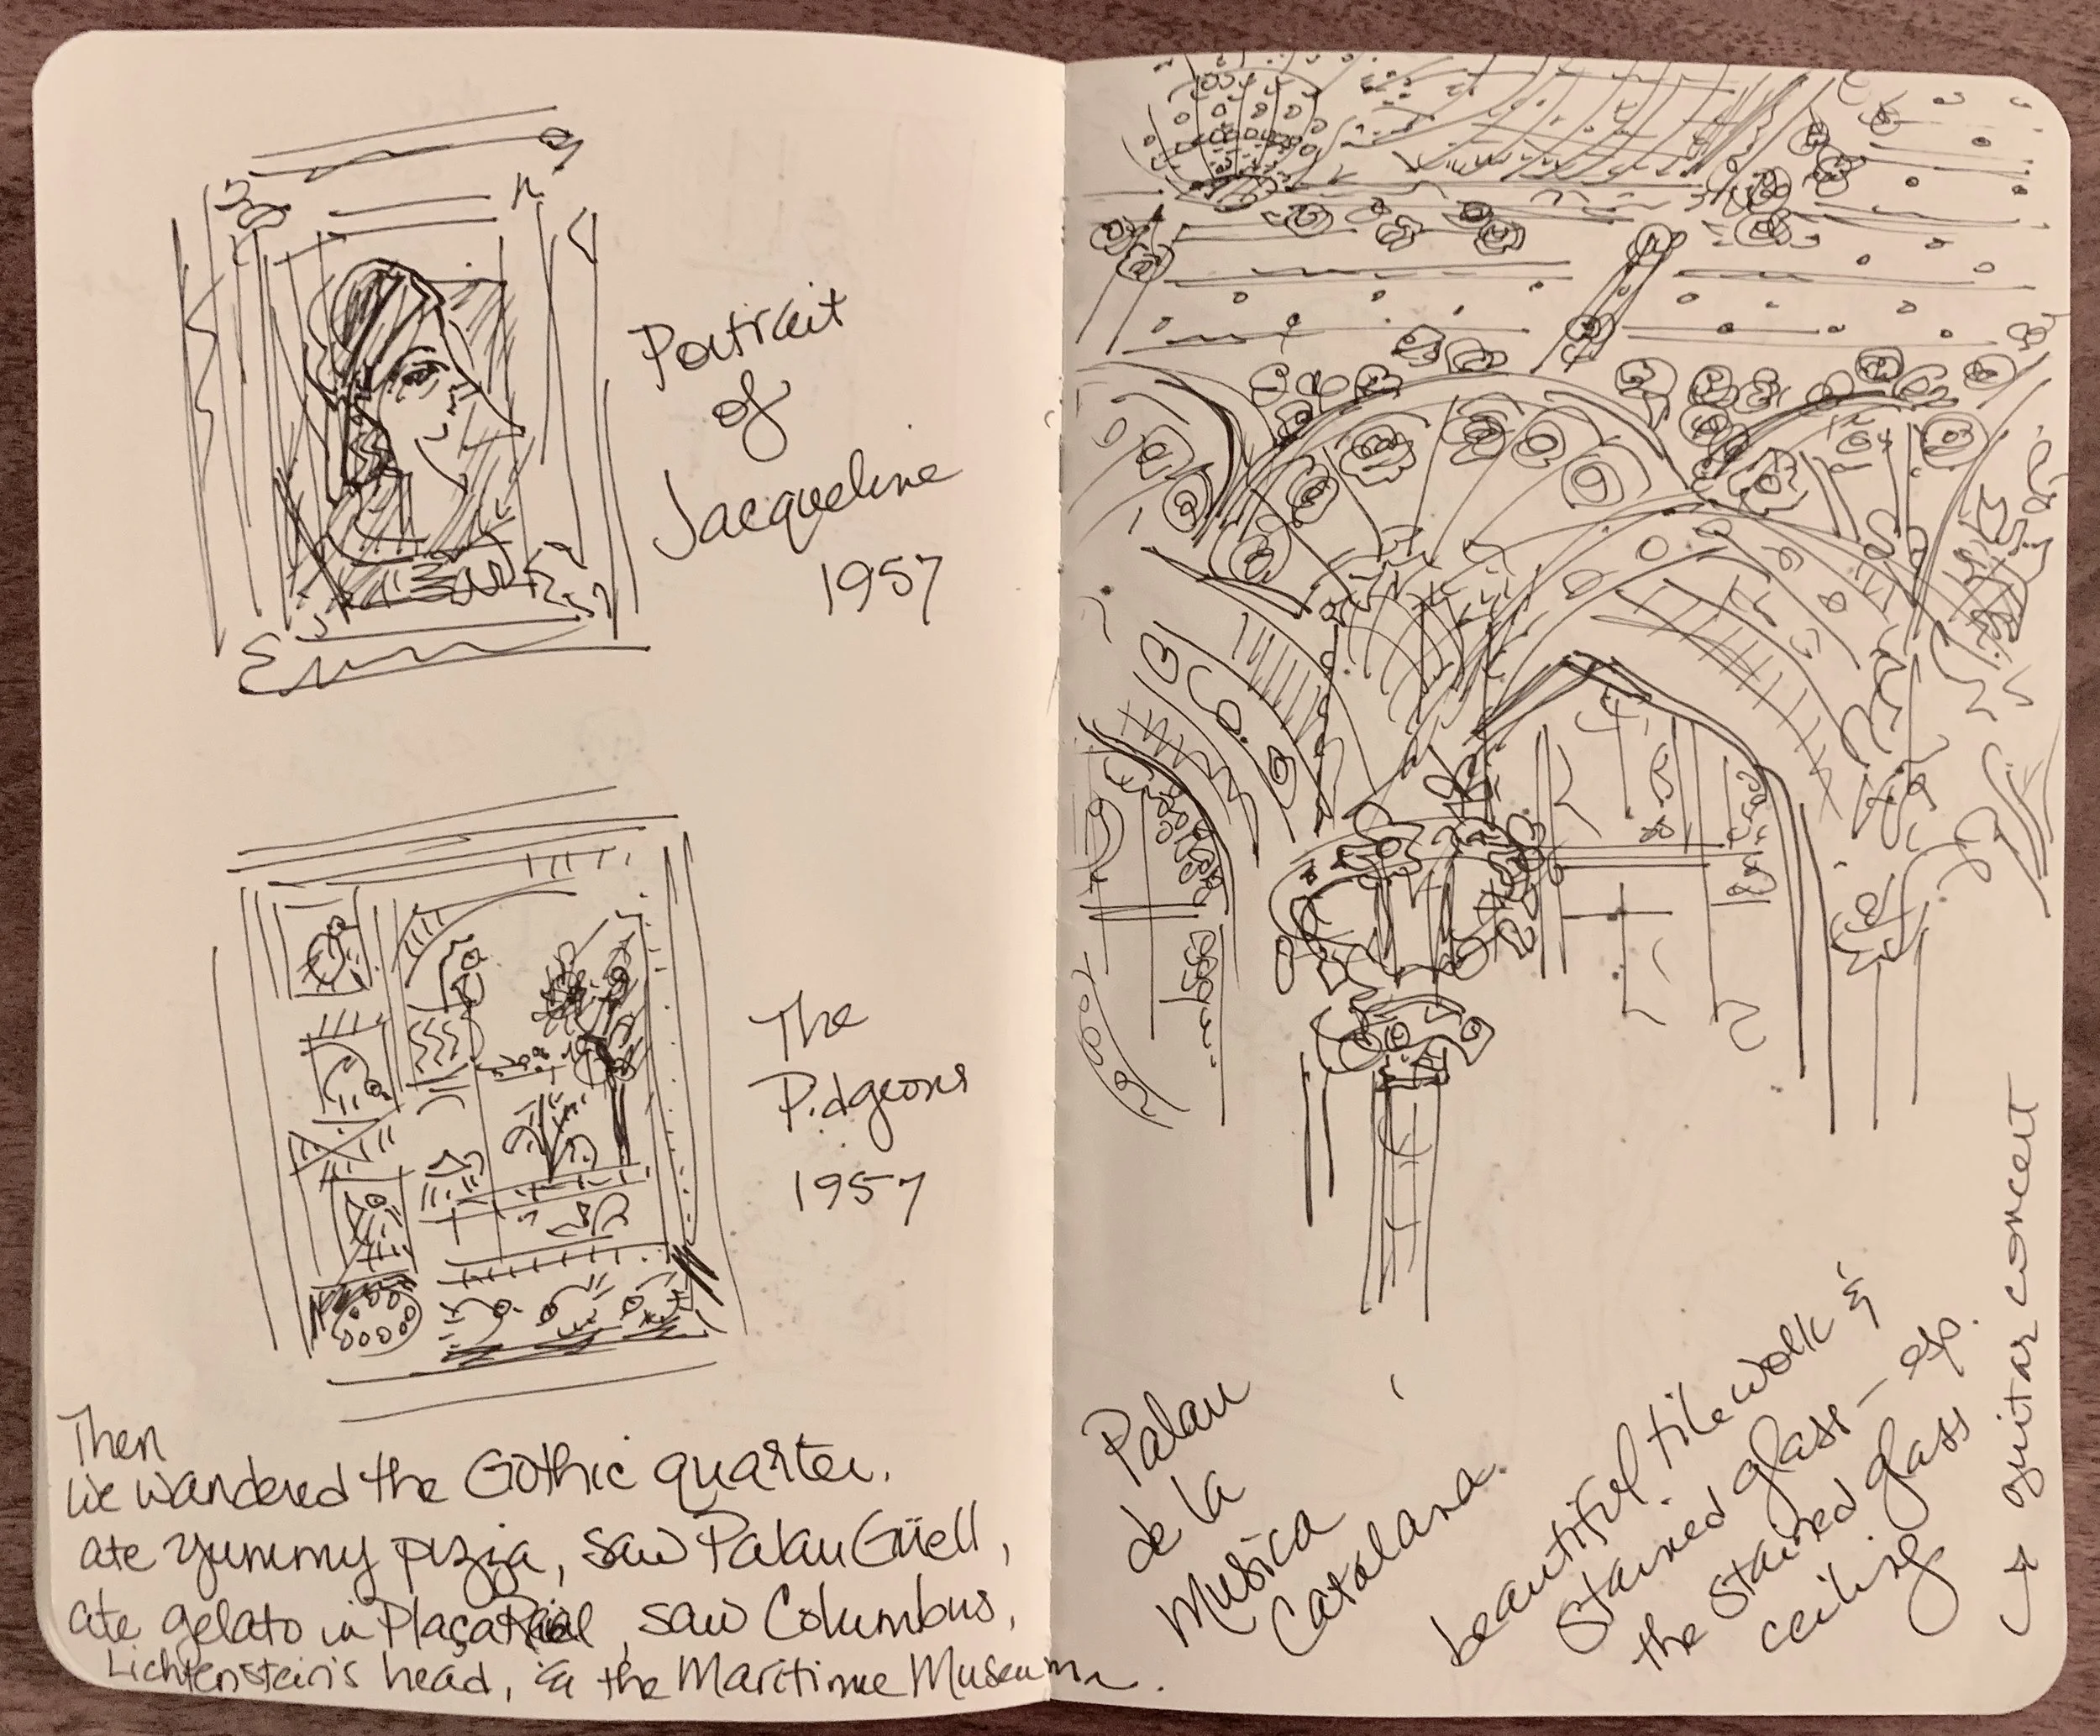 Portrait
of
Jacqueline
1957
The
Pidgeons
1957
Then
we wandered the Gothic quarter.
ate yummy pizza, saw Palau Güell,
ate gelato in Plaça Reial, saw Columbus,
Lichtenstein's head, & the Maritime Museum.
Palau
de la
Musica
Catalana.
beautiful tile work &
stained glass - esp.
the stained glass
ceiling
guitar concert